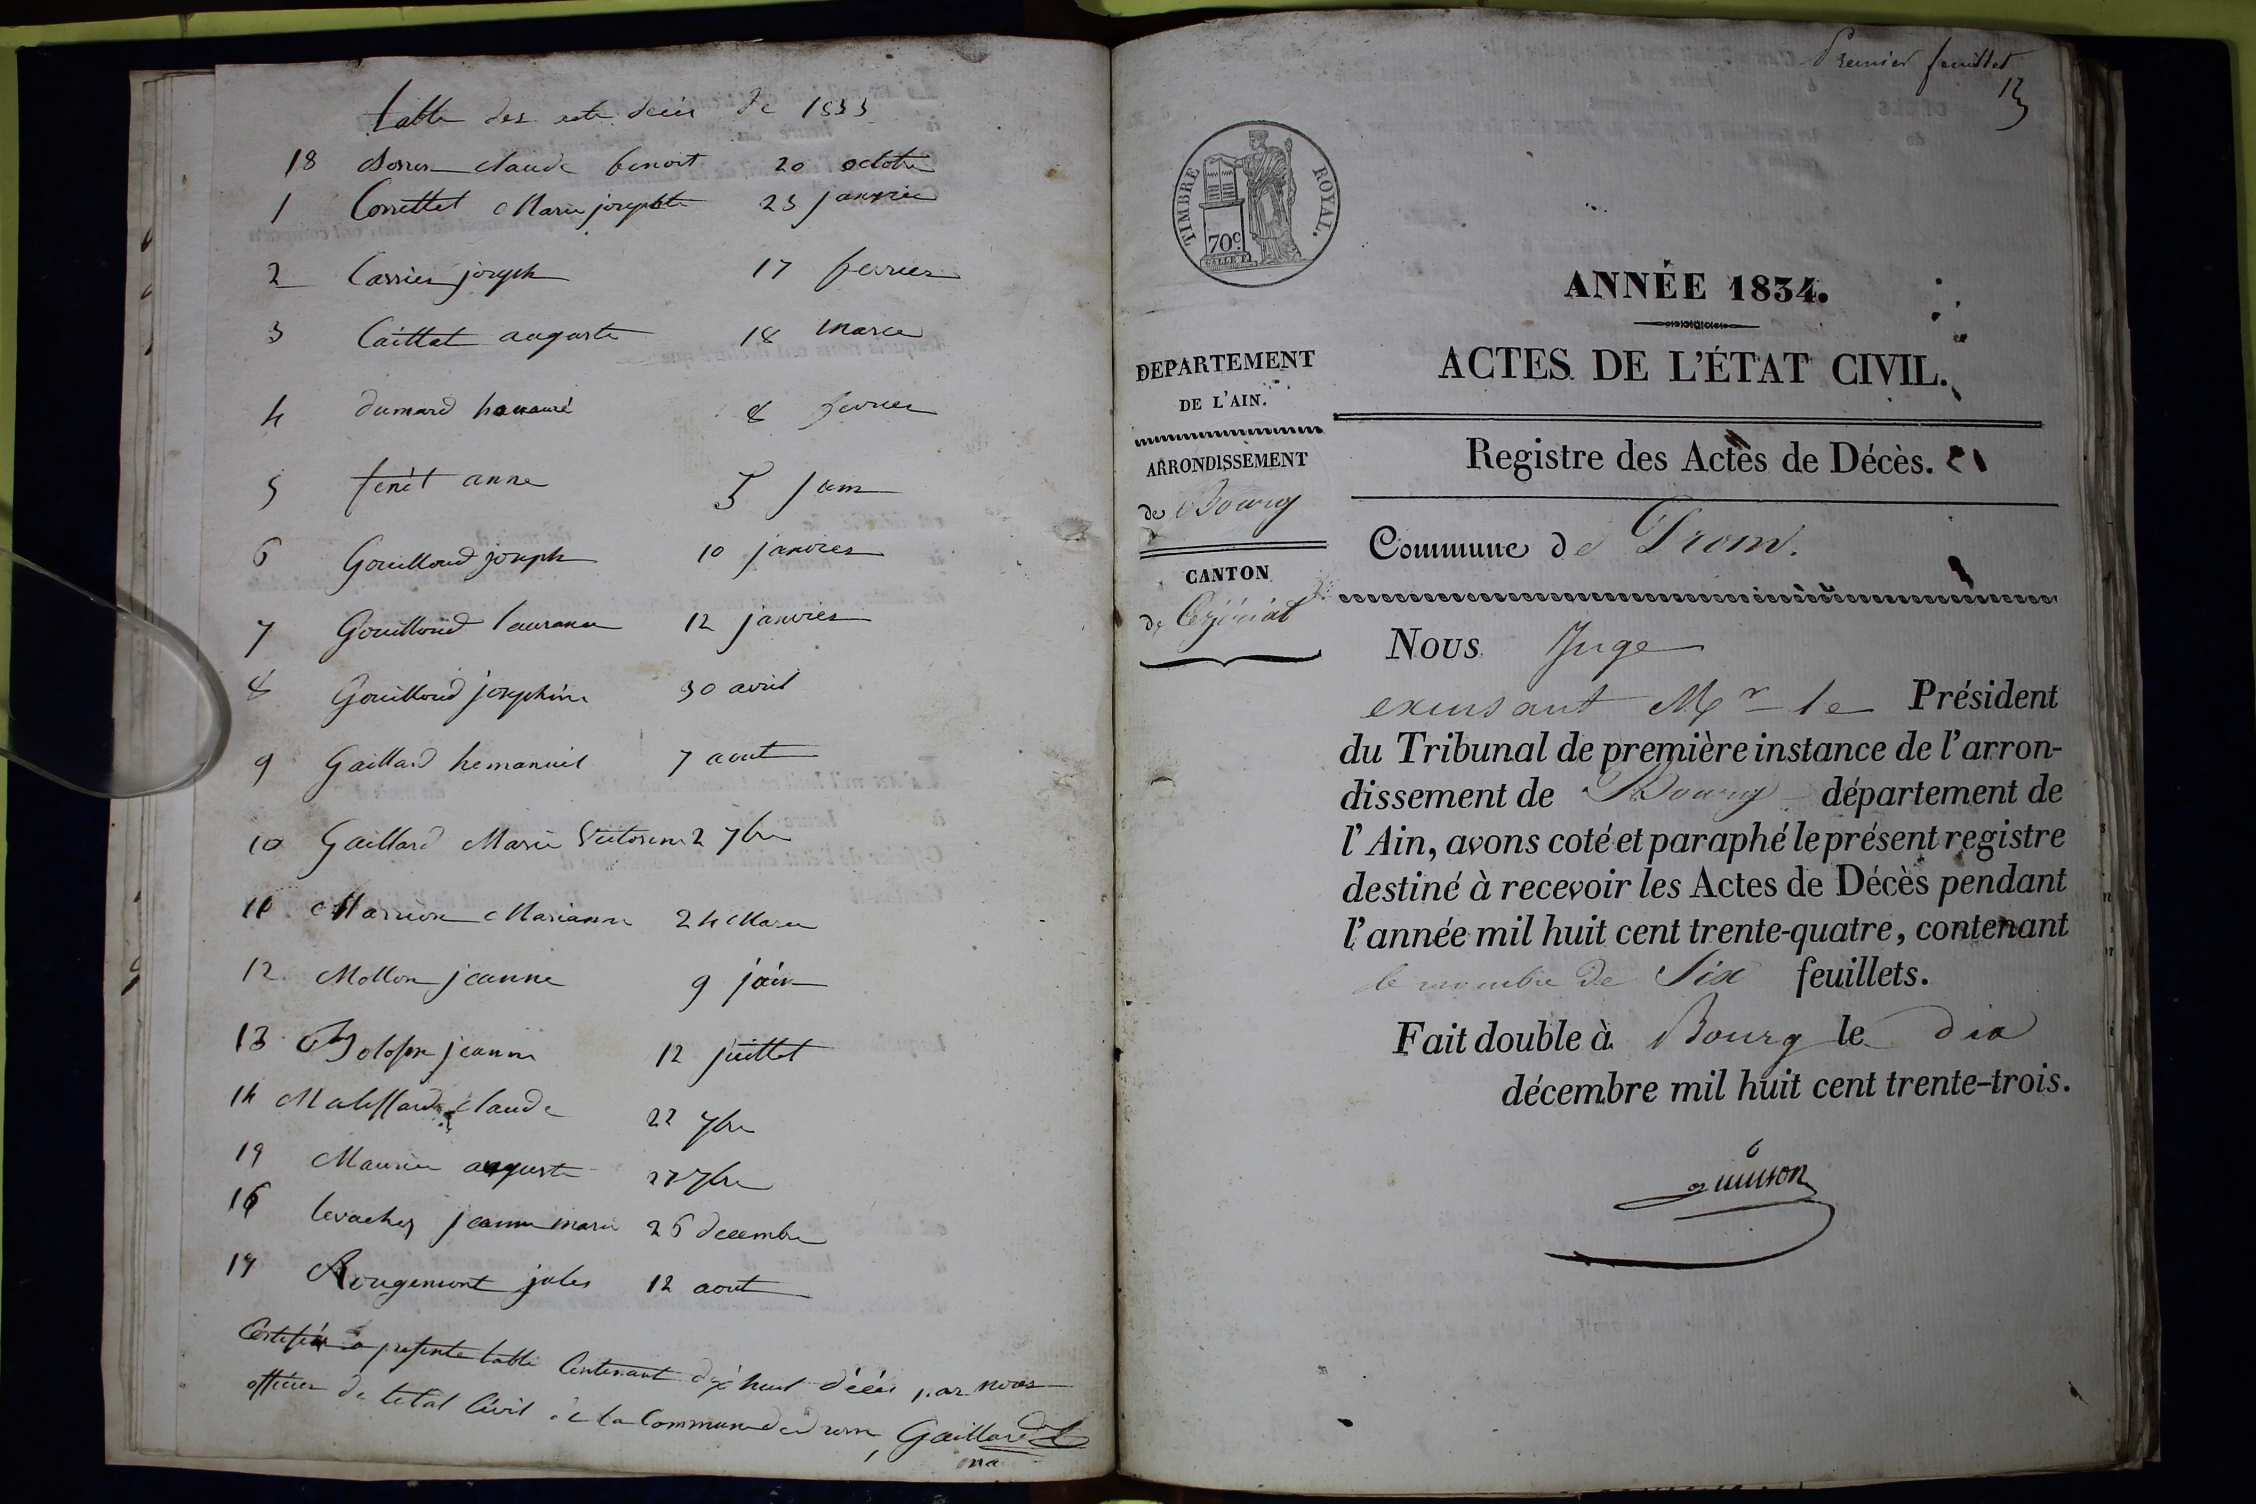 table des acte décès de 1833
18 claude benoit 20 octobre
1 Correttet Marie josephte 23 janvier
2 Carrier joseph 17 fevrier
3 Caillat auguste 18 Marce
4 dumard honnauré 8 fevrier
5 fenét anne 5 juin
6 Gouilloud joseph 10 janvier
7 Gouilloud laurance 12 janvier
8 Gouilloud josephine 30 avril
9 Gaillard hemanuel 7 aout
10 Gaillard Marie Victorine 2 7bre
11 Marrion Marianne 24 Marce
12 Mollon jeanne 9 juin
13 jeanne 12 juillet
14 claude 22 7bre
15 Maurier auguste 27 7bre
16 levacher jeanne marie 26 decembre
17 Rougemont jules 12 aout
Certifié la presente table Contenant dix huit décés par nous
officier de letat Civil de la Commune de drom Gaillard
Premier feuillet
TIMBRE ROYAL.
70c.
ANNÉE 1834.
ACTES DE L'ÉTAT CIVIL.
DEPARTEMENT
DE L'AIN.
ARRONDISSEMENT
de Bourg
CANTON
de Ceyzériat
Registre des Actes de Décès.
Commune de Drom.
Nous Juge
excusant Mr le Président
du Tribunal de première instance de l'arron-
dissement de Bourg département de
l'Ain, avons coté et paraphé le présent registre
destiné à recevoir les Actes de Décès pendant
l'année mil huit cent trente-quatre, contenant
le nombre de Six feuillets.
Fait double à Bourg le dix
décembre mil huit cent trente-trois.